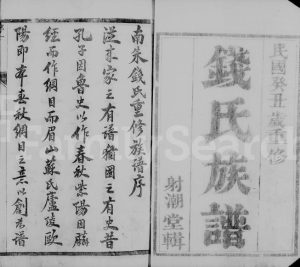 民國癸丑歲重修
錢氏族譜
射潮堂輯
南朱錢氏重修族譜序
從來家之有譜猶國之有史昔
孔子因魯史以作春秋紫陽因麟
經而作綱目而眉山蘇氏廬陵歐
陽即本春秋綱目之意以創為譜